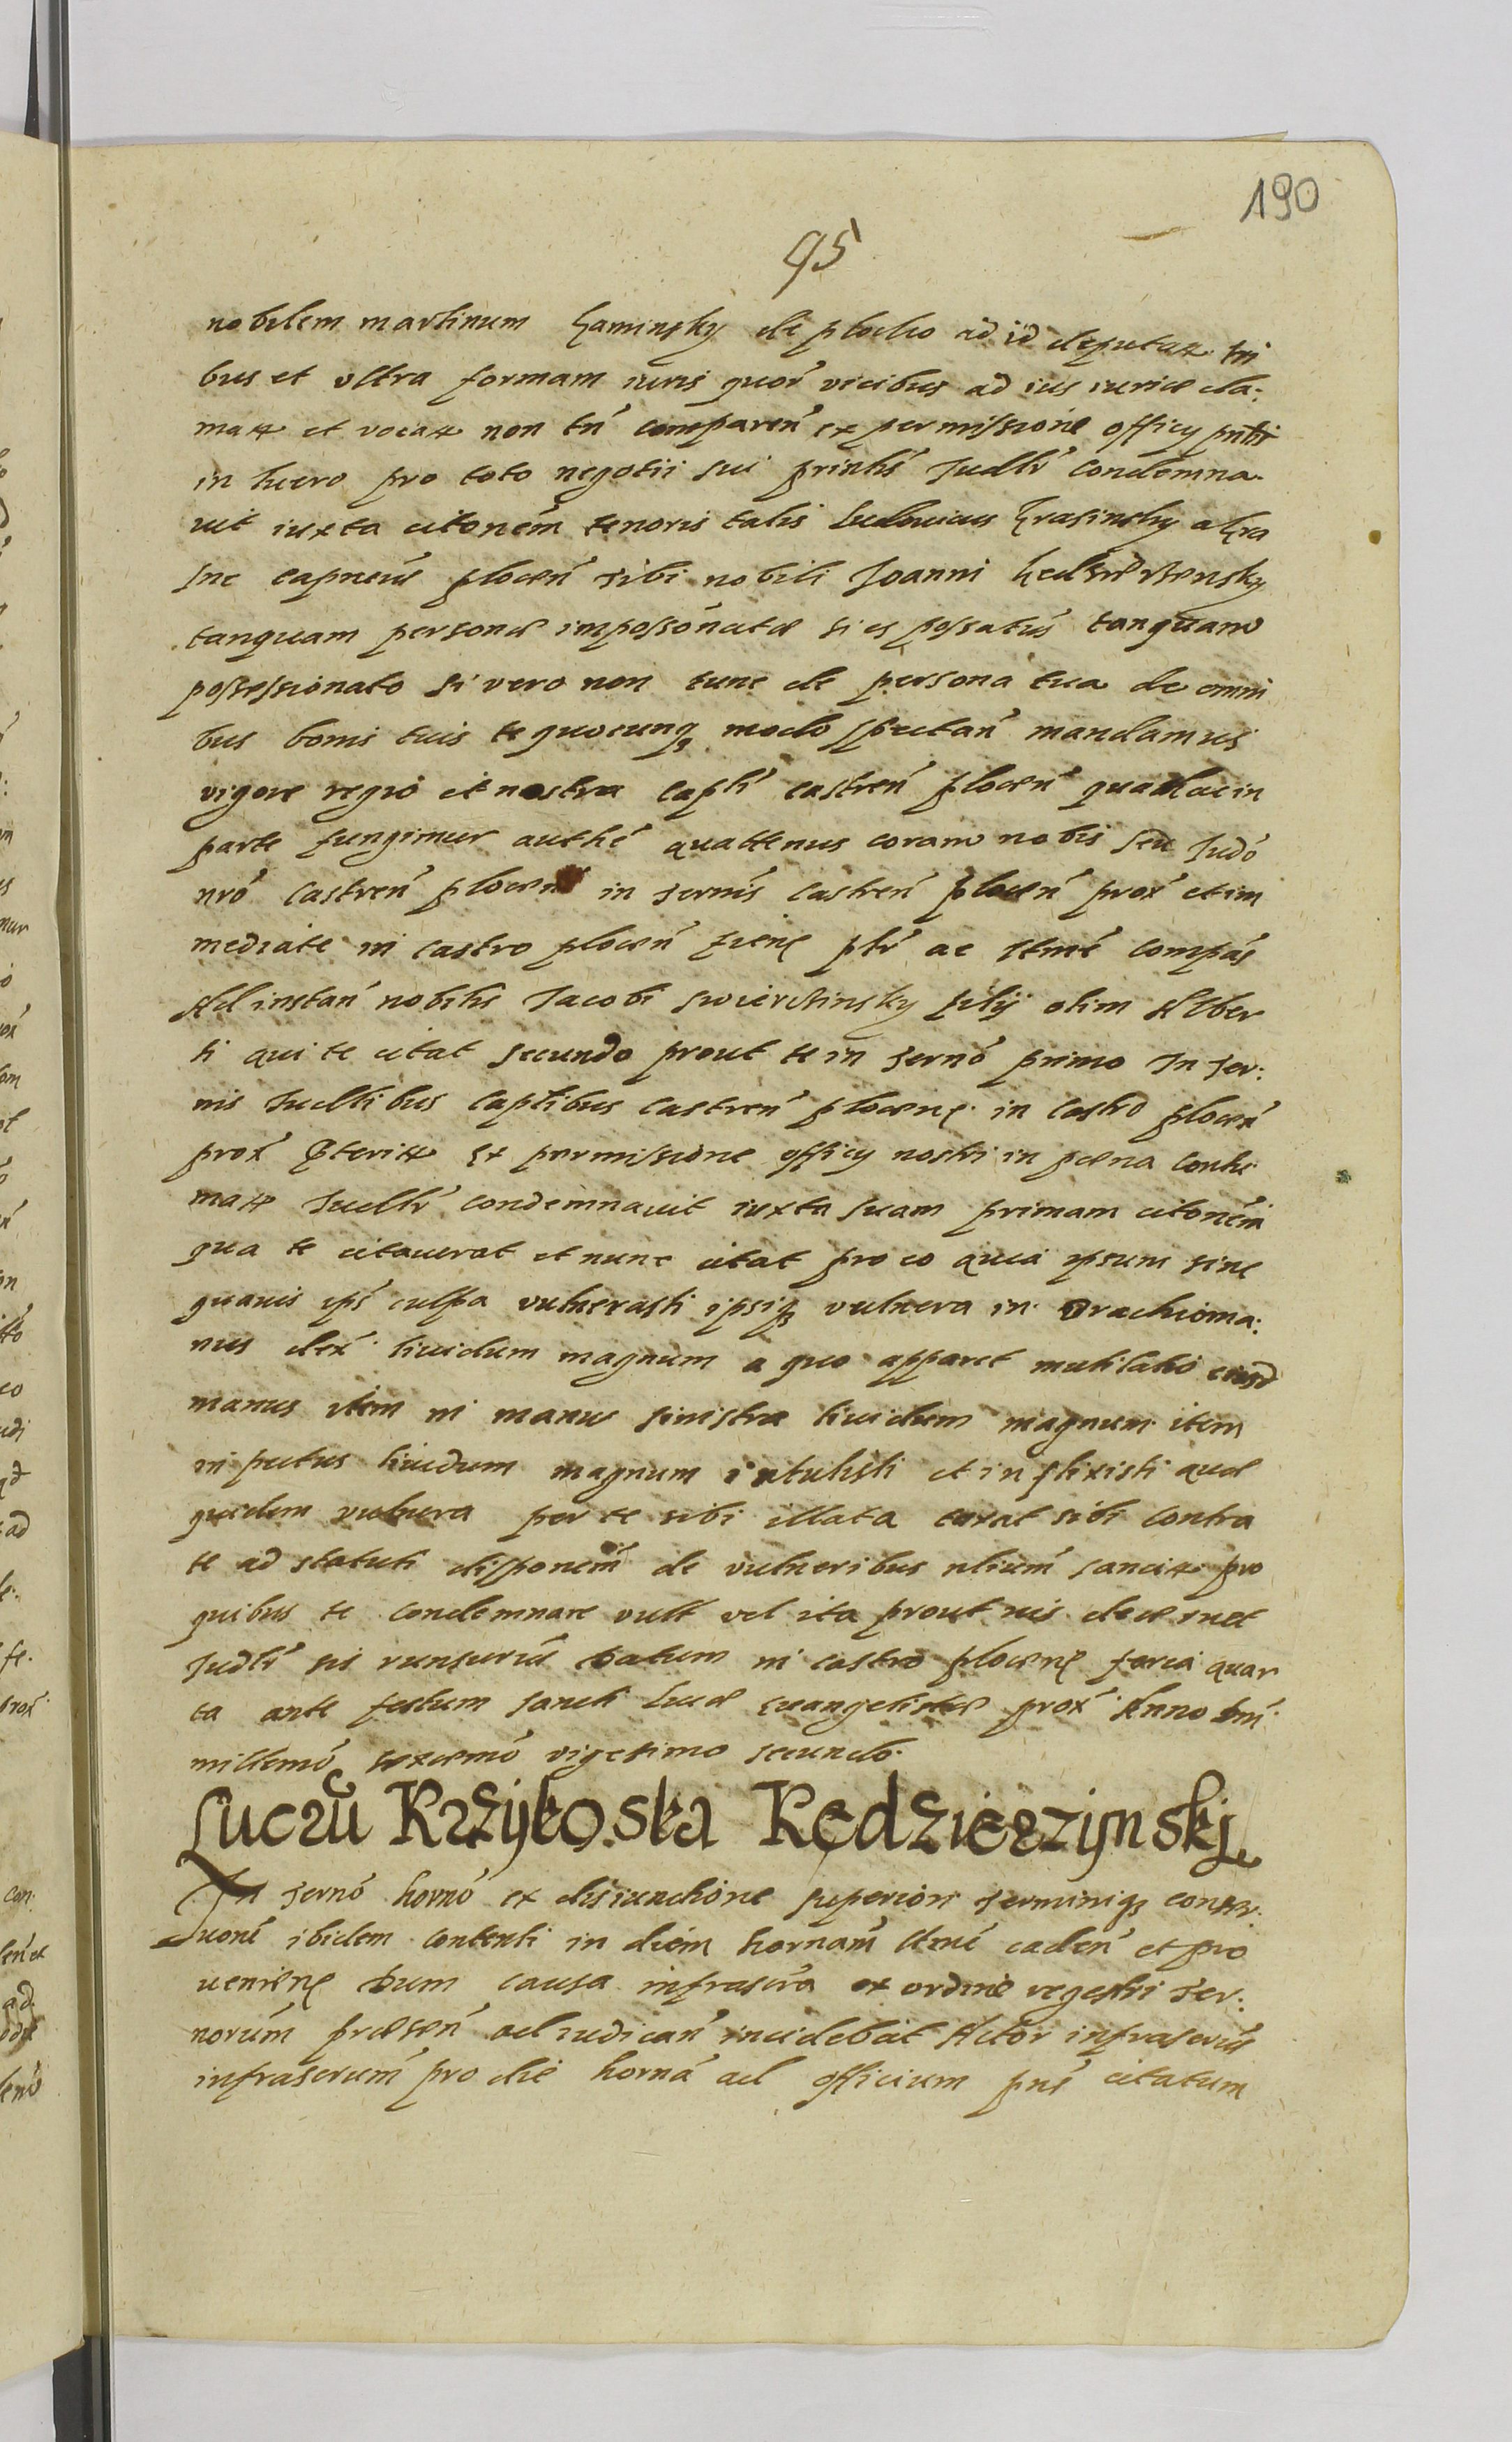 190
95
nobilem martinum Kaminsky de plocko ad id deputat. tri
bus et vltra formam iuris quor vicibus ad ius iurice cla:
mat et vocat non tn comparen ex permissione officy pntis
in lucro pro toto negotii sui prinlis Judlr condemna
uit iuxta citonem tenoris talis Ludouicus Krasinsky a Kra
sne capneus plocen tibi nobili Joanni Kedzierzensky
tanquam personæ impossonatæ si es possatus tanquam
possessionato si vero non tunc de persona tua de omni
bus bonis tuis te quocunq modo spectan mandamus
vigore regio et nostra captli castren plocen qua hac in
parte fungimur authe quattenus coram nobis seu Judo
nro castren plocen in termis castren plocen prox et im
mediate in castro plocen fiene plr ac ttme compas
Ad instan nobilis Jacobi swierchinsky filij olim Alber
ti qui te citat secundo prout te in termo primo In ter:
nis Judlibus captlibus castren plocens in castro plocen
prox pterit ex permissione officy nostri in pæna contu
mat Judlr condemnauit iuxta suam primam citonem
qua te citauerat et nunc citat pro eo quia ipsum sine
quauis ips culpa vulnerasti ipsiq vulnera in brachio ma:
nus dex liuidum magnum a quo apparet mutilatio eiusd
manus item in manu sinistra liuidum magnum item
in pectus liuidum magnum intulisti et inflixisti quæ
quidem vulnera per te sibi illata taxat sibi contra
te ad statuti disponem de vulneribus nlium sancit pro
quibus te condemnare vult vel ita prout ius decernet
Judlr sis runsurus Datum in castro plocens feria quar
ta ante festum sancti Lucæ Euangelistæ prox Anno Dni
millemo sexcemo vigesimo secundo
Lucru Krzÿkoska Kędzierzÿnskj
In termo horno ex disiunctione superiori terminiq conser:
uone ibidem contenti in diem hornam ttme caden et pro
ueniens Dum causa infrascra ex ordine regestri ter:
norum præsen ad iudican incidebat Actor infrascrus
infrascrum pro die horna ad officium pns citatum